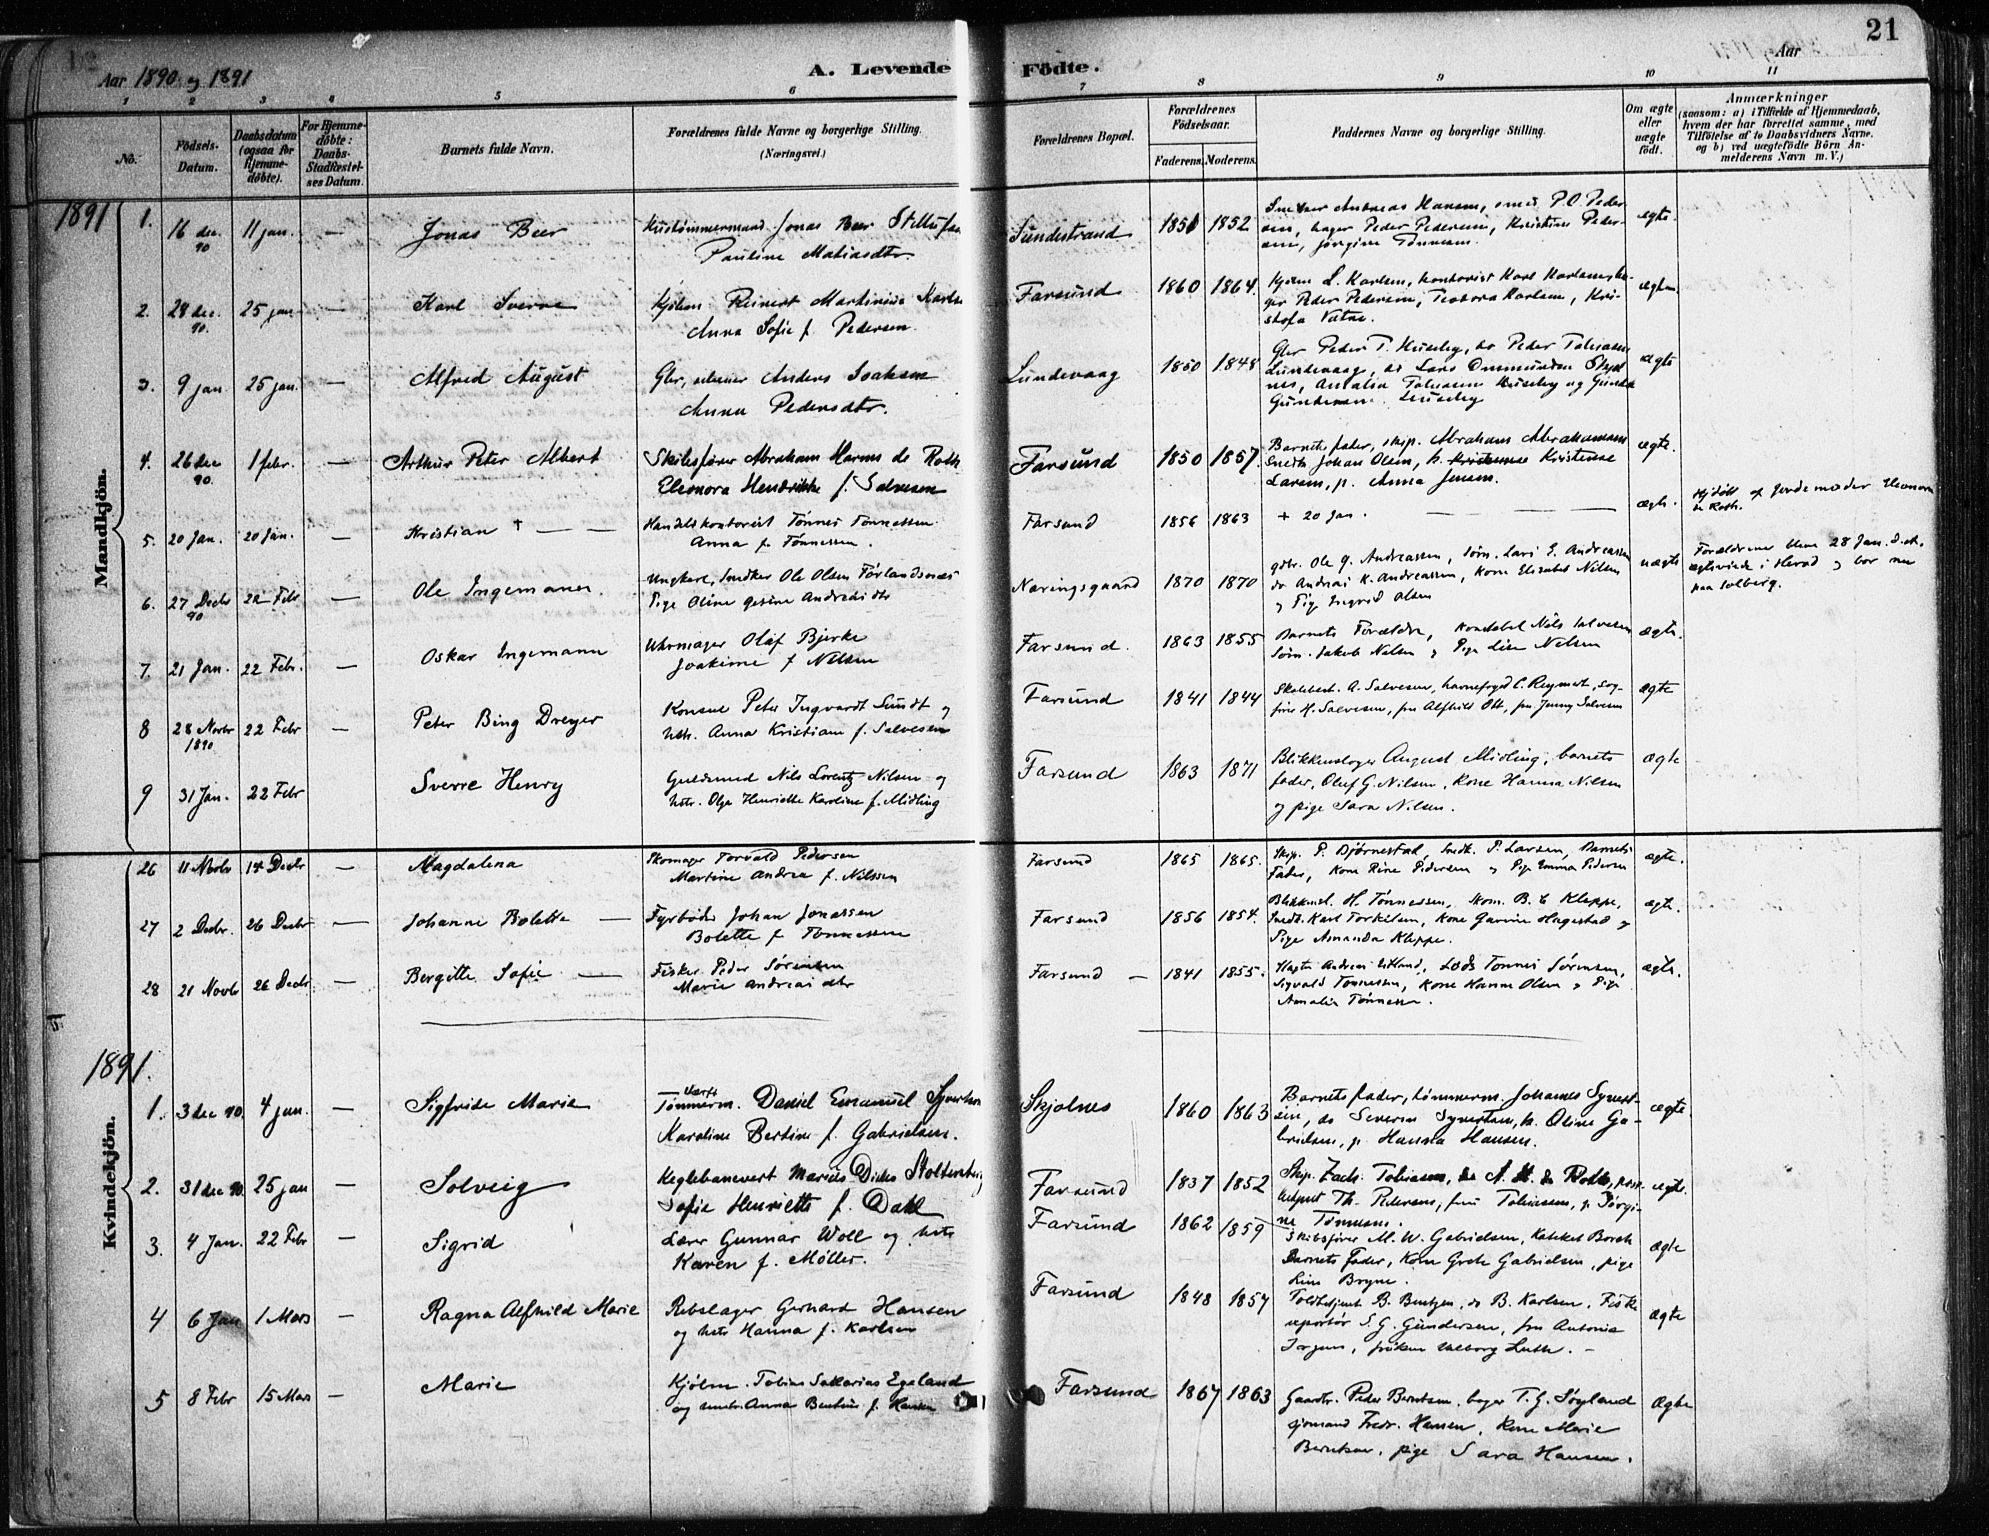 21
Aar 1890 og 1891
A. Levende Födte.
Aar
1 2 3 4 5 6 7 8 9 10 11
No.
Födsels-Datum.
Daabsdatum (ogsaa for Hjemmedöbte).
For Hjemmedöbte: Daabs-Stadfæstelses Datum.
Barnets fulde Navn.
Forældrenes fulde Navne og borgerlige Stilling. (Næringsvei.)
Forældrenes Bopæl.
Forældrenes Födselsaar.
Faderens. Moderens.
Faddernes Navne og borgerlige Stilling.
Om ægte eller uægte födt.
Anmærkninger
(saasom: a) i Tilfælde af Hjemmedaab, hvem der har forrettet samme, med Tilföielse af to Daabsvidners Navne, og b) ved uægtefödte Börn Anmelderens Navn m. V.)
Mandkjön.
1891
1. 16 dec. 90 11 jan. — Jonas Beer
Jonas Beer
Pauline Matiasdtr.
Sundestrand 1851 1852
Andreas Hansen, smed P.O. Peder
sen, bager Peder Pedersen, Kristine Peder-
sen, Jørgine Tønnesen. ægte.
2. 28 dec. 90. 25 jan — Karl Sverre
Reinert Martinius
Anna Sofie f. Pedersen.
Farsund 1860 1864.
L. Karlsen, kontorist Karl
Peder Pedersen, Teodora Karlsen, Kri-
stofa Vatne.
3. 9 jan. 25 jan. — Alfred August
Gbr, Anders Isaksen
Anna Pedersdtr.
Lundevaag 1850 1848
Gbr Peder T. Huseby, do Peder Tobiassen
Lundevaag, do Lars
Amalia Tobiassen Huseby og Gunda
Gundersen Huseby ægte
4. 26 dec 90. 1 febr. — Arthur Peter Albert
Skibsfører Abraham Marius de Roth
Eleonora Hendrikke f. Salvesen
Farsund 1850 1857.
Barnets fader, skip. Abraham Abrahamsen
Snedk. Johan Olsen, k. Kristense
Larsen, p. Anna Jensen. ægte.
5. 20 Jan. 20 Jan. — Kristian † —
Handelskontorist Tønnes Tønnessen
Anna f. Tønnessen.
Farsund 1856 1863 + 20 Jan. — ægte.
Hjdøbt af Jordemoder Eleonora
de Roth.
6. 27 Decbr 90 22 Febr — Ole Ingemann.
Ungkarl, Snedker Ole Olsen Førlandsnes
Pige Oline Gesine Andreasdtr
Næringsgaard 1870 1870
gdbr. Ole G. Andreassen, Søm. Lars E. Andreassen
do Andreas K. Andreassen, Kone Elisabet Nilsen
og Pige Ingrid Olsen uægte
Forældrene bleve 28 Jan. d.A.
ægteviede i Herad og bor nu
paa Solberg.
7. 21 Jan. 22 Febr. — Oskar Ingemann
Uhrmager Olaf Bjerke
Joakime f. Nilsen
Farsund. 1863 1855
Barnets Forældre, Konstabel Nils Salvesen
Søm. Jakob Nilsen og Pige Lise Nilsen ægte.
8 28 Novbr 1890 22 Febr — Peter Bing Dreyer
Konsul Peter Ingvardt Sundt og
hstr. Anna Kristiane f. Salvesen
Farsund 1841 1844
Skolebest. A. Salvesen, havnefoged C. Reymert,
H. Salvesen, fru Alfhild Ott, fru Jenny Salvesen ægte
9 31 Jan. 22 Febr Sverre Henry
Guldsmed Nils Lorentz Nilsen og
hstr. Olga Henriette Karoline f. Midling
Farsund 1863 1871
Blikkenslager August Midling, barnets
fader, Oluf G. Nilsen, Kone Hanna Nilsen
og pige Sara Nilsen. ægte
Kvindekjön.
26 11 Novbr 14 Decbr — Magdalena
Skomager Torvald Pedersen
Martine Andrea f. Nilssen
Farsund 1865 1865.
Skip. P. Bjørnestad, Snedk. P. Larsen, Barnets
Fader, Kone Rine Pedersen og Pige Emma Pedersen ægte.
27 2 Decbr. 26 Decbr — Johanne Bolette —
Fyrbøder Johan Jonassen
Bolette f Tønnessen
Farsund 1856 1854.
Blikkensl. H. Tønnessen, Skom. B. C Kleppe,
Snedk. Karl Torkilsen, Kone Gurine Hagestad og
Pige Amanda Kleppe. ægte.
28 21 Novbr 26 Decbr — Bergitte Sofie —
Fisker Peder Sørensen
Marie Andreasdtr
Farsund — 1841 1855.
Andreas Lods Tønnes Sørensen,
Sigvald Tønnessen, Kone Hanne Olsen og Pige
Amalia Tønnessen. ægte.
1891.
1. 3 dec 90. 4 jan. — Sigfride Marie
Værfts
Tømmerm. Daniel Emanuel Syvertsen
Karoline Bertine f. Gabrielsen.
Skjolnes 1860 1863
Barnets fader, tømmerm. Johannes Syvert-
sen, do Severin Syvertsen, k. Oline Ga-
brielsen, p. Hanna Hansen. ægte
2. 31 dec 90. 25 jan — Solveig
Keglebanevert Marius Dicks Stoltenberg
Sofie Henriette f. Dahl
Farsund 1837 1852
Skip. Zach. Tobiassen, do A. M. de Roth,
Th. Pedersen, fru Tobiassen, p. Jørgi-
ne Tønnesen. ægte.
3. 4 Jan. 22 Febr — Sigrid
Lærer Gunnar Woll og hstr
Karen f. Møller.
Farsund 1862 1859
Skibsfører M. W. Gabrielsen, Kateket Borch
Barnets fader, Kone Grete Gabrielsen, pige
Line Bryne. ægte
4 6 Jan 1 Mars — Ragna Alfhild Marie
Rebslager Gerhard Hansen
og hstr Hanna f. Karlsen
Farsund 1848 1857
Toldbetjent B. Bentzen, do B. Karlsen, Fisk
exportør S. G. Gundersen, fru Antonie
Jørgens, frøken Valborg Luth. — ægte
5 8 Febr 15 Mars — Marie
Kjølm. Tobias Sakarias Egeland
og hustr. Anna Bentine f. Hansen
Farsund 1867 1863
Gaardbr. Peder Berntsen, bager T. G. Søyland
sjømand Fredr. Hansen, Kone Marie
Berntsen, pige Sara Hansen. Ægte